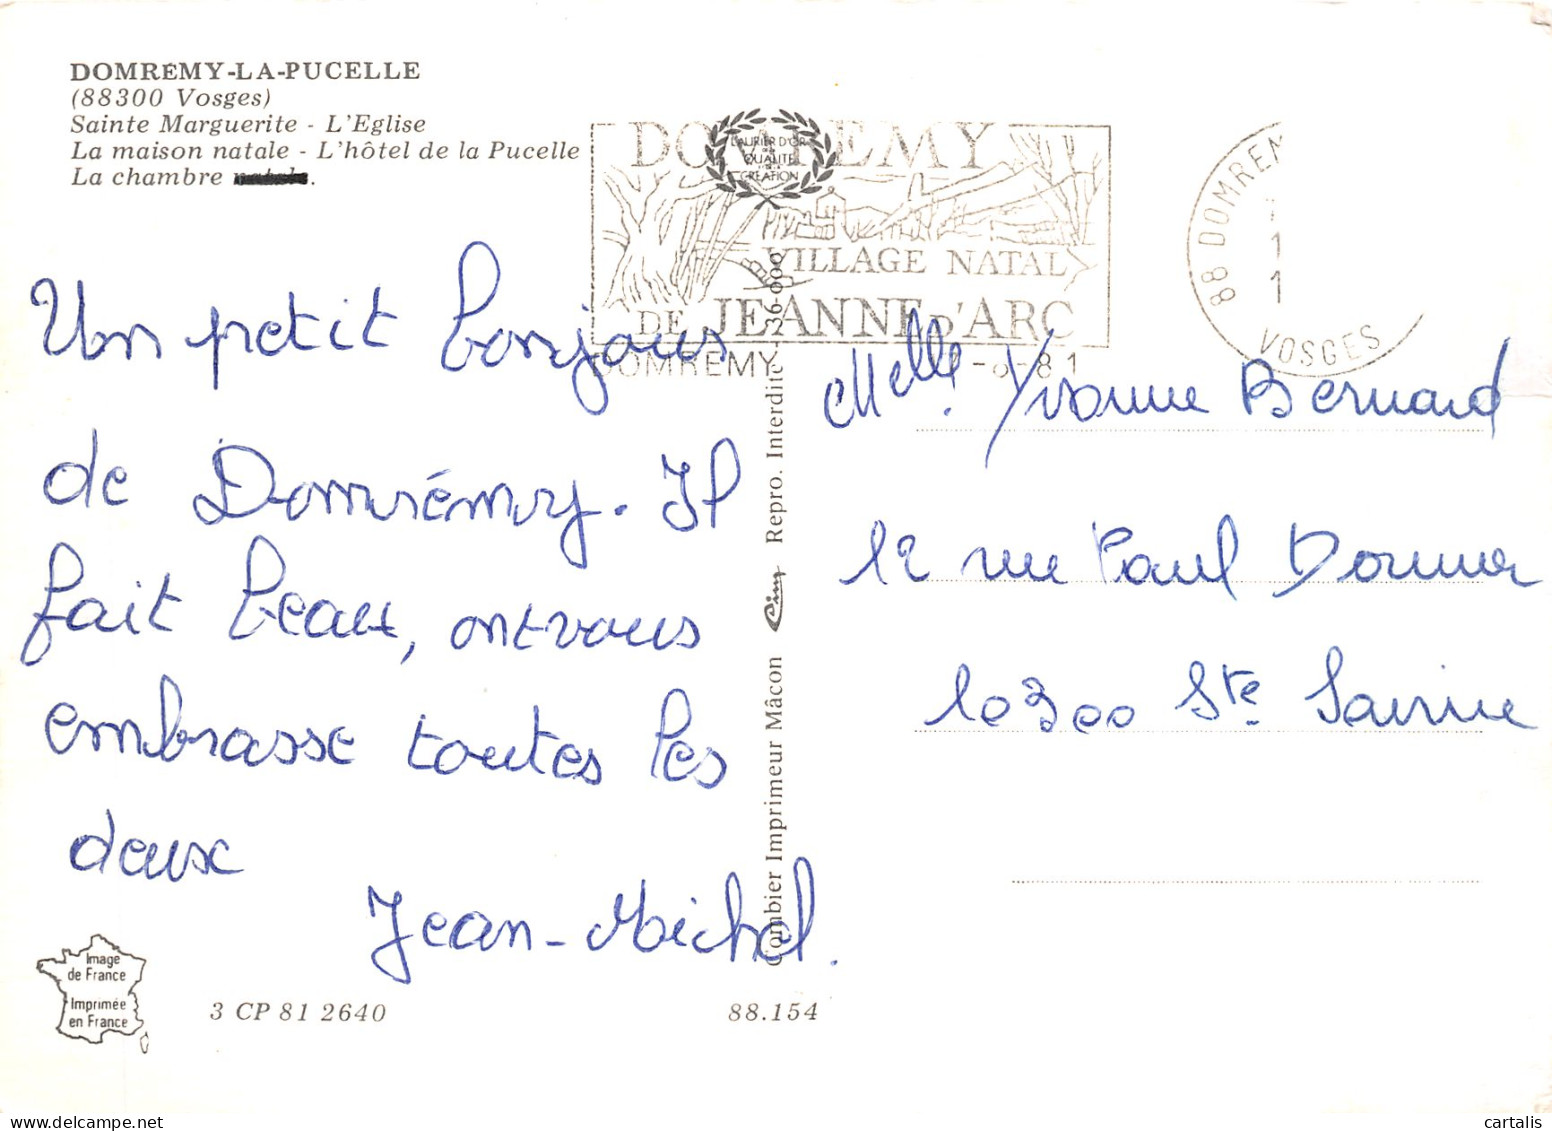 DOMREMY-LA-PUCELLE
(88300 Vosges)
Sainte Marguerite - L'Eglise
La maison natale - L'hôtel de la Pucelle
La chambre
LAURIER D'OR
DE LA
QUALITÉ
CRÉATION
DOMREMY
VILLAGE NATAL
DE JEANNE D'ARC
DOMREMY
81
88 DOMREM
VOSGES
Un petit bonjour
de Domrémy. Il
fait beau, on vous
embrasse toutes les
deux
Jean-Michel.
Melle. Yvonne Bernard
12 rue Paul Doumer
10300 Ste. Savine
Combier Imprimeur Mâcon Cim Repro. Interdite - 36-000
Image
de France
Imprimée
en France
3 CP 81 2640
88.154
cartalis